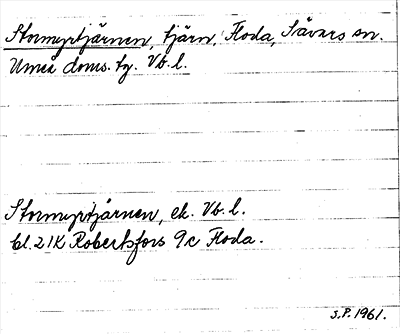 Stormyrtjärnen, tjärn, Floda, Sävars sn.
Umeå doms. tg. Vb. l.
Stormyrtjärnen, ek. Vb. l.
bl. 21K Robertsfors 9c Floda.
S.P. 1961.